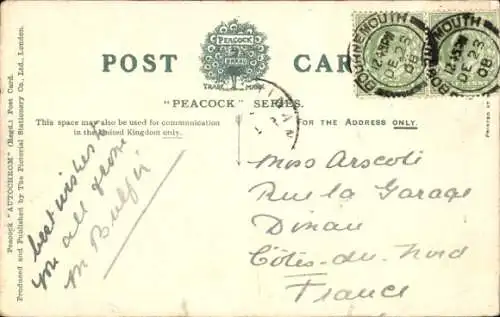 POST CARD
PEACOCK
BRAND
TRADE MARK
"PEACOCK" SERIES.
This space may also be used for communication
in the United Kingdom only.
FOR THE ADDRESS ONLY.
BOURNEMOUTH
DE 23
08
BOURNEMOUTH
DE 23
08
Peacock "AUTOCHROM" (Regd.) Post Card.
Produced and Published by The Pictorial Stationery Co., Ltd., London.
best wishes to
you all from
M
Miss Arscott
Rue la Garage
Dinan
Côtes-du-Nord
France